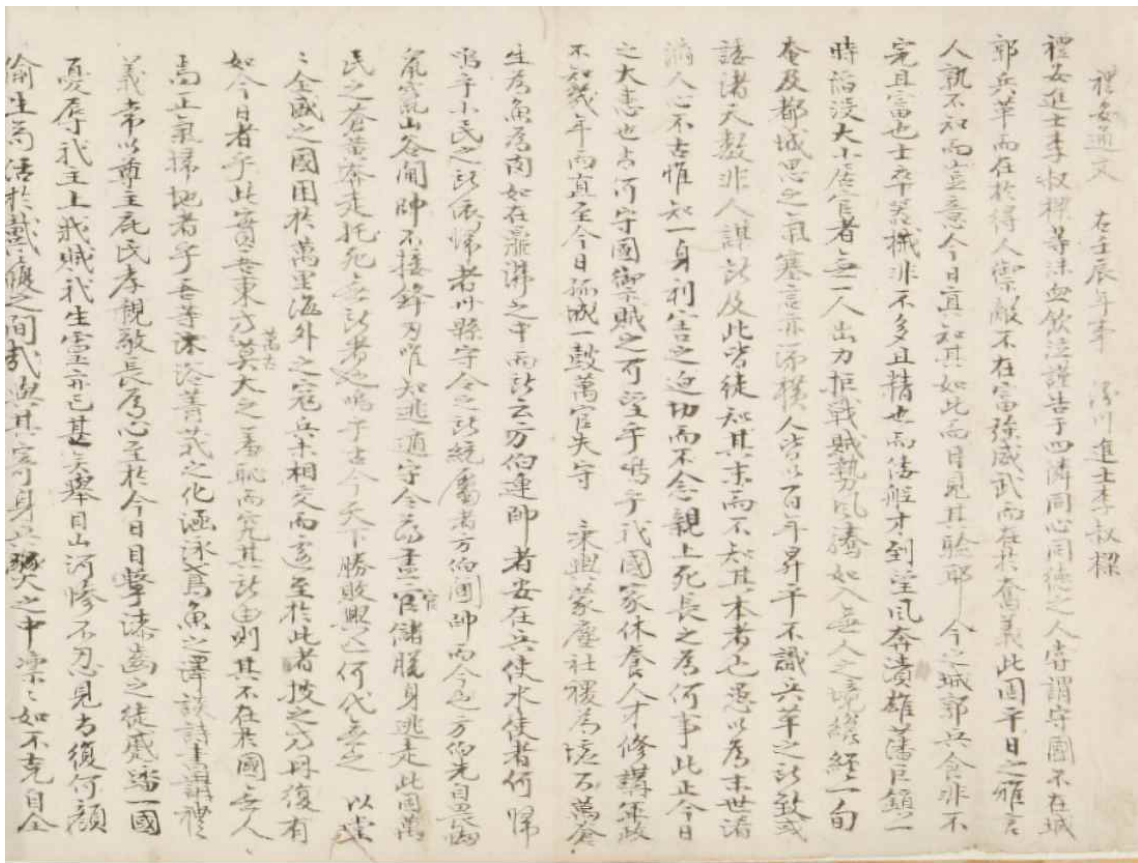 禮安通文 在壬辰年事 汾川進士李叔樑
禮安進士李叔樑等沫血飮泣謹告于四隣同心同德之人嘗謂守國不在城
郭兵革而在於得人禦敵不在富强威武而在於奮義此固平日之雅言
人孰不知而豈意今日直知其如此而目見其驗耶 今之城郭兵食非不
完且富也士卒器械非不多且精也而倭船才到望風奔潰雄藩巨鎭一
時陷沒大小居官者無一人出力拒戰賊勢風騰如入無人之境纔經一旬
奄及都城思之氣塞言亦添橫人皆以百年昇平不識兵革之所致或
諉諸天數非人謀所及此皆徒知其末而不知其本者也愚以爲末世淆
漓人心不古惟知一身利害之迫切而不念親上死長之爲何事此正今日
之大患也尙何守國禦賊之可望乎嗚乎我國家休養人才修講軍政
不知幾年而直至今日孤城一鼓萬官失守 乘輿蒙塵社稷爲墟百萬蒼
生爲魚爲肉如在鼎沸之中而所云方伯連帥者安在兵使水使者何歸
嗚乎小民之所依歸者州縣守令之所統屬者方伯閫帥而今也方伯先自畏㥘
鼠竄山谷閫帥不接鋒刃唯知逃遁守令盡官儲脫身逃走此固萬
民之蒼黃奔走托死無所者也嗚乎古今天下勝敗興亡何代無之 以堂
〻全盛之國困於萬里海外之寇兵未相交而遽至於此者披之方冊復有
如今日者乎此實吾東方萬古莫大之羞恥而究其所由則其不在於國無人
焉正氣掃地者乎吾等沐浴菁莪之化涵泳鳶魚之澤談詩書講禮
義常以尊主庇民孝親敬長爲心至於今日目擊漆齒之徒蹙踏一國
憂辱我主上戕賊我生靈亦已甚矣擧目山河慘不忍見吾復何顔
偷生苟活於戴履之間哉與其寄身兵燹之中凜〻如不克自全